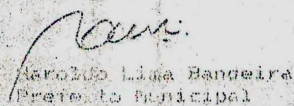 Haroldo Lima Bandeira
Prefeito Municipal